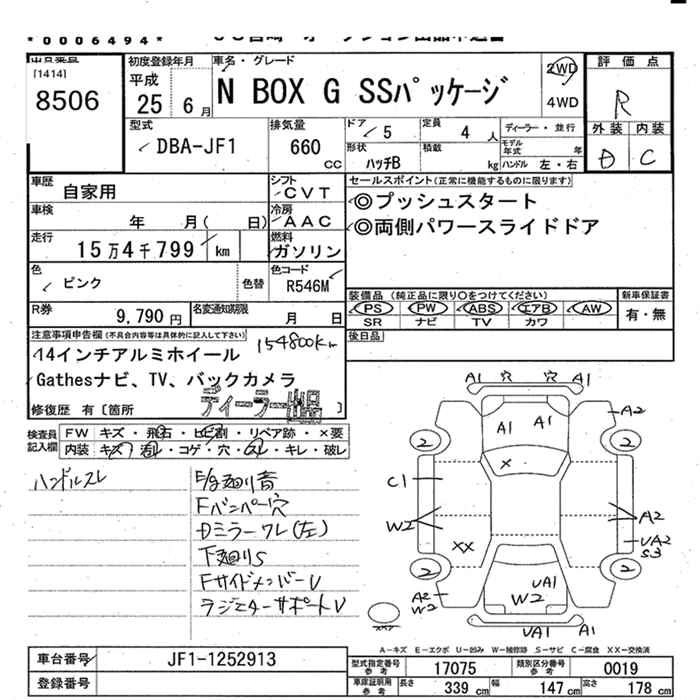 *0006494*
[1414]
8506
初度登録年月
平成
25 年 6 月
車名・グレード
N BOX G SSパッケージ
2WD
4WD
評価点
R
外装 内装
D C
型式
DBA-JF1
排気量
660 CC
ドア 5
定員 4 人
ディーラー・並行
形状 ハッチB
積載 kg
モデル年式 年
ハンドル 左・右
車歴 自家用
シフト CVT
車検 年 月( 日)
冷房 AAC
走行 15万4千799 km
燃料 ガソリン
色 ピンク
色替
色コード R546M
R券 9,790 円
名変通知期限 月 日
セールスポイント(正常に機能するものに限ります)
◎プッシュスタート
◎両側パワースライドドア
装備品(純正品に限り○をつけてください)
新車保証書
PS PW ABS エアB AW
SR ナビ TV カワ
有・無
後日品
注意事項申告欄(不具合内容等は具体的に記入して下さい)
154800km
14インチアルミホイール
Gathesナビ、TV、バックカメラ
ディーラー出品
修復歴 有〔箇所 〕
検査員記入欄
FW キズ・飛石・ヒビ割・リペア跡・×要
内装 キズ・汚レ・コゲ・穴・スレ・キレ・破レ
ハンドルスレ
E/g廻り音
Fバンパー穴
Dミラーワレ(左)
下廻りS
FサイドメンバーU
ラジエターサポートU
A1 穴 穴 A1
A2
A1 A1
2 2
C1
X
W2
A2
XX
UA2
S3
2 2
A2
W2
UA1
W2
UA1 A1
A-キズ E-エクボ U-凹み W-補修跡 S-サビ C-腐食 XX-交換済
車台番号 JF1-1252913
登録番号
型式指定番号参考 17075
類別区分番号参考 0019
車庫証明用参考
長さ 339 cm
幅 147 cm
高さ 178 cm